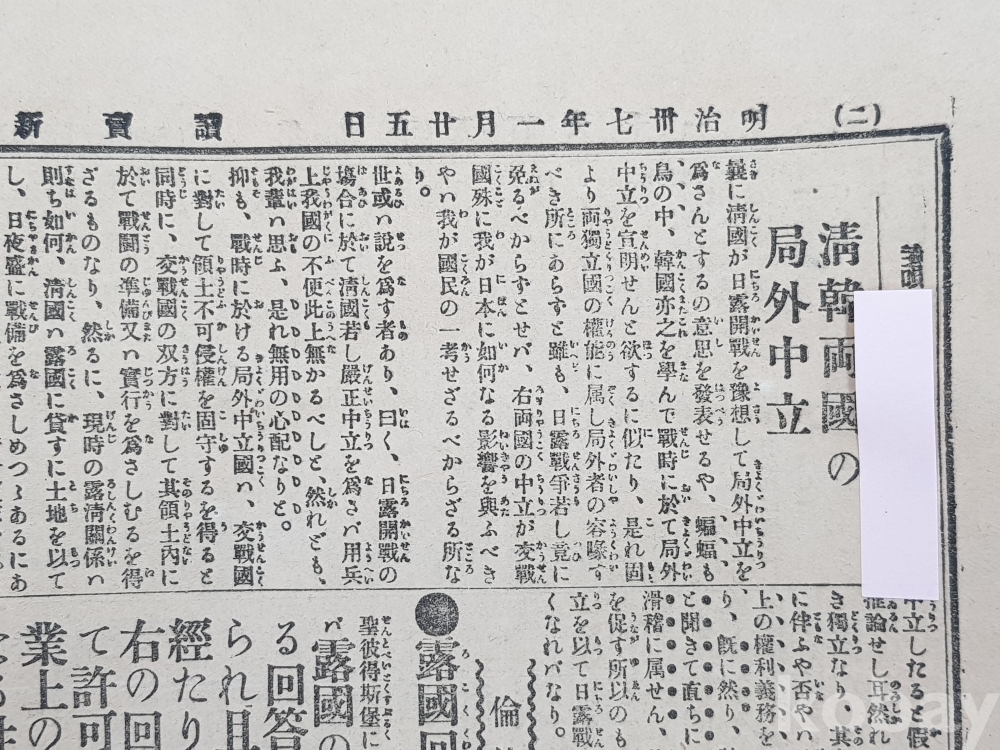 (二)
明治卅七年一月廿五日
讀賣新
清韓両國の
局外中立
曩に淸國が日露開戰を豫想して局外中立を
爲さんとするの意思を發表せるや、蝙蝠も
鳥の中、韓國亦之を學んで戰時に於て局外
中立を宣明せんと欲するに似たり、是れ固
より両獨立國の權能に属し局外者の容喙す
べき所にあらずと雖も、日露戰爭若し竟に
免るべからずとせバ、右両國の中立が交戰
國殊に我が日本に如何なる影響を與ふべき
やハ我が國民の一考せざるべからざる所な
り。
世或ハ說を爲す者あり、曰く、日露開戰の
塲合に於て淸國若し嚴正中立を爲さバ用兵
上我國の不便此上無かるべしと、然れども、
我輩ハ思ふ、是れ無用の心配なりと。
抑も、戰時に於ける局外中立國ハ、交戰國
に對して領土不可侵權を固守するを得ると
同時に、交戰國の双方に對して其領土內に
於て戰鬪の準備又ハ實行を爲さしむるを得
ざるものなり、然るに、現時の露淸關係ハ
則ち如何、淸國ハ露國に貸すに土地を以て
し、日夜盛に戰備を爲さしめつゝあるにあ
中立したると假
推論せし耳然れ
き獨立なり、其
に伴ふや否やハ
上の權利義務を
り、既に然り、
と聞きて直ちに
滑稽に属せん、
を促す所以のも
立を以て日露戰
くなれバなり。
倫
●露國回
聖彼得斯堡に
バ露國の
る回答
られ且
經たり
右の回
て許可
業上の
kobay